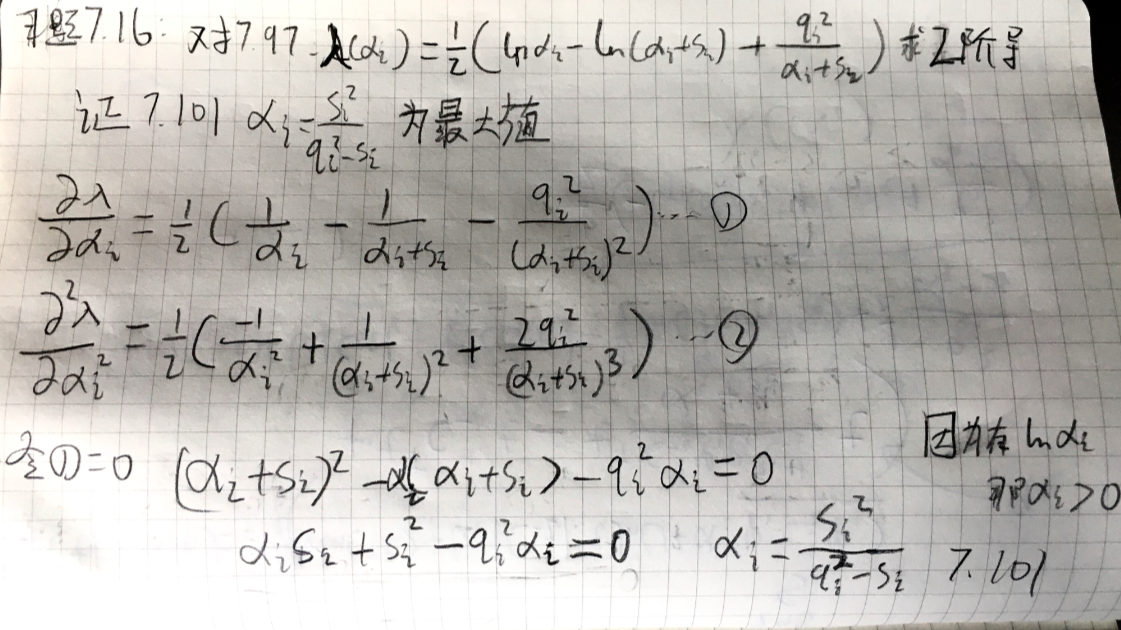 习题7.16: 对于7.97 λ(αᵢ) = 1/2 (ln αᵢ - ln(αᵢ+sᵢ) + qᵢ²/(αᵢ+sᵢ)) 求2阶导
证 7.101 αᵢ = sᵢ²/(qᵢ²-sᵢ) 为最大值
∂λ/∂αᵢ = 1/2 (1/αᵢ - 1/(αᵢ+sᵢ) - qᵢ²/(αᵢ+sᵢ)²) ... ①
∂²λ/∂αᵢ² = 1/2 (-1/αᵢ² + 1/(αᵢ+sᵢ)² + 2qᵢ²/(αᵢ+sᵢ)³) ... ②
令①=0 (αᵢ+sᵢ)² - αᵢ(αᵢ+sᵢ) - qᵢ²αᵢ = 0
因为有 ln αᵢ
即αᵢ>0
αᵢsᵢ + sᵢ² - qᵢ²αᵢ = 0 αᵢ = sᵢ²/(qᵢ²-sᵢ) 7.101